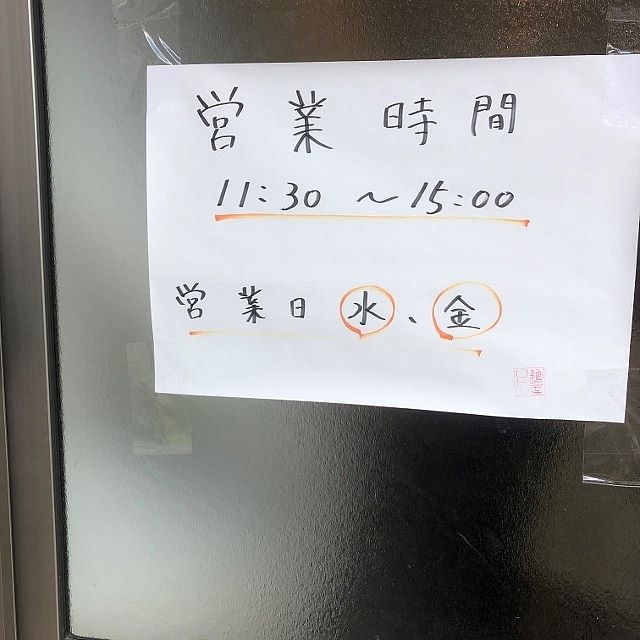 営業時間
11:30 ～15:00
営業日 水、金